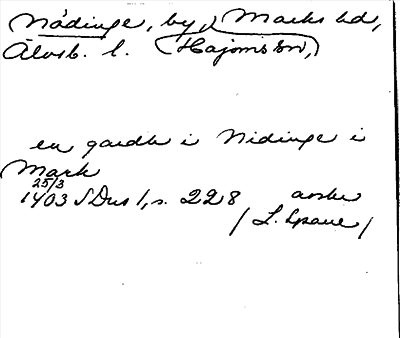 Nådinge, by, Marks hd,
Älvsb. l. (Hajoms sn,)
en gardh i Nidinge i
Mark
25/3
1403 SDns 1, s. 228 avskr
/ L. Sparre /